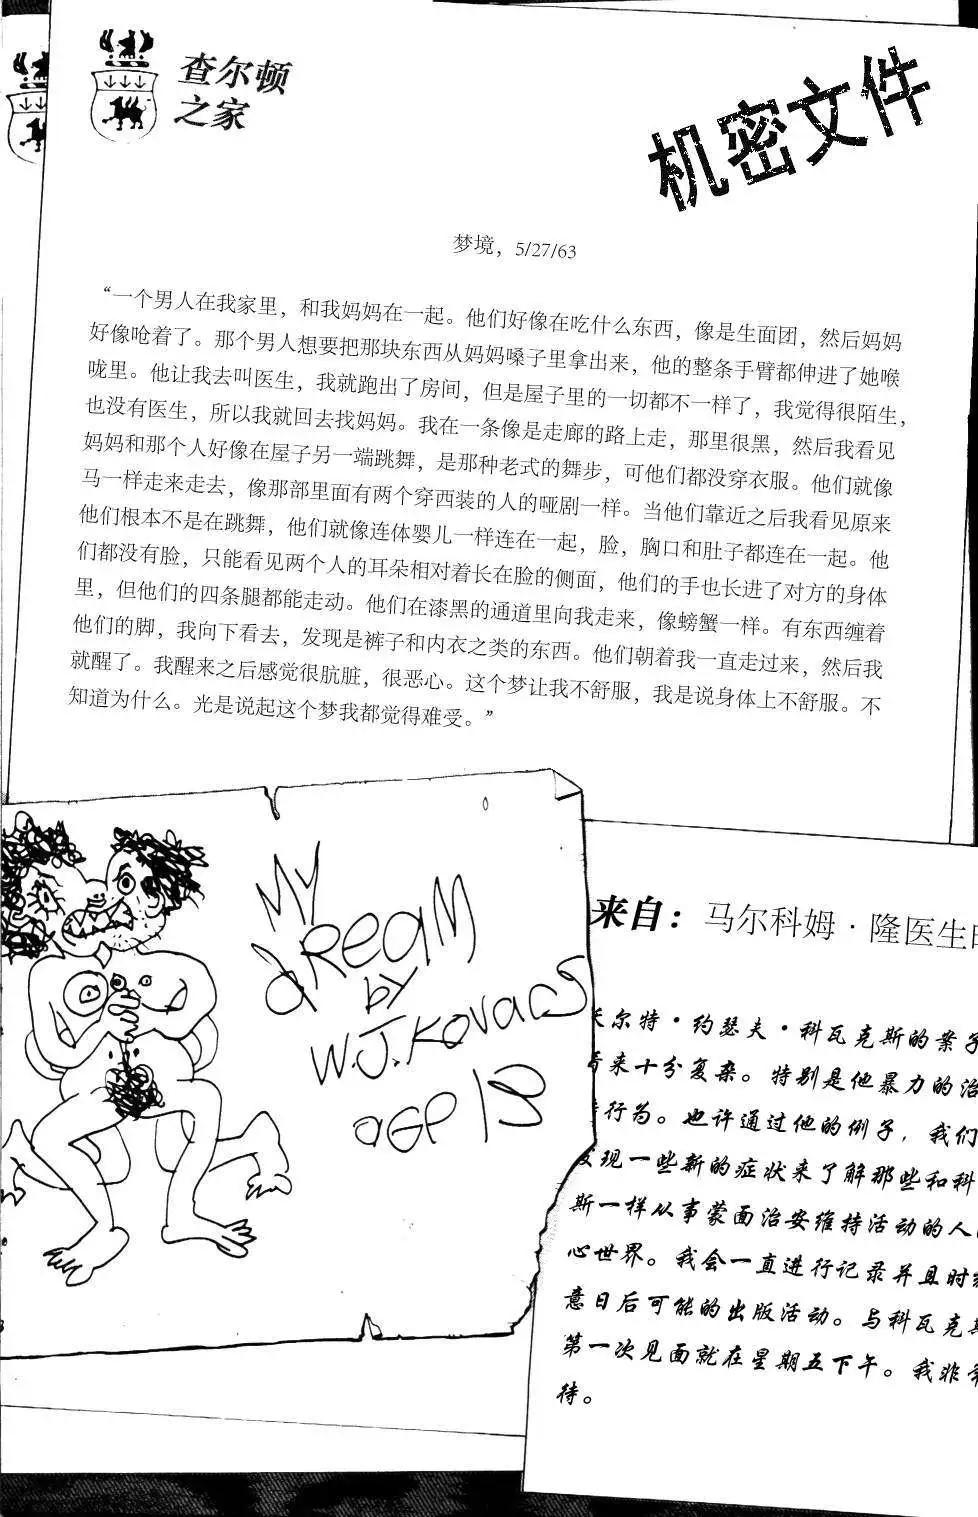 查尔顿
之家
机密文件
梦境，5/27/63
“一个男人在我家里，和我妈妈在一起。他们好像在吃什么东西，像是生面团，然后妈妈
好像呛着了。那个男人想要把那块东西从妈妈嗓子里拿出来，他的整条手臂都伸进了她喉
咙里。他让我去叫医生，我就跑出了房间，但是屋子里的一切都不一样了，我觉得很陌生，
也没有医生，所以我就回去找妈妈。我在一条像是走廊的路上走，那里很黑，然后我看见
妈妈和那个人好像在屋子另一端跳舞，是那种老式的舞步，可他们都没穿衣服。他们就像
马一样走来走去，像那部里面有两个穿西装的人的哑剧一样。当他们靠近之后我看见原来
他们根本不是在跳舞，他们就像连体婴儿一样连在一起，脸，胸口和肚子都连在一起。他
们都没有脸，只能看见两个人的耳朵相对着长在脸的侧面，他们的手也长进了对方的身体
里，但他们的四条腿都能走动。他们在漆黑的通道里向我走来，像螃蟹一样。有东西缠着
他们的脚，我向下看去，发现是裤子和内衣之类的东西。他们朝着我一直走过来，然后我
就醒了。我醒来之后感觉很肮脏，很恶心。这个梦让我不舒服，我是说身体上不舒服。不
知道为什么。光是说起这个梦我都觉得难受。”
MY
dREAM
by
W.J.KOVACS
AGE 13
来自：马尔科姆·隆医生
尔特·约瑟夫·科瓦克斯的案子
来十分复杂。特别是他暴力的治
行为。也许通过他的例子，我们
发现一些新的症状来了解那些和科
斯一样从事蒙面治安维持活动的人
心世界。我会一直进行记录并且时
意日后可能的出版活动。与科瓦克
第一次见面就在星期五下午。我非
待。